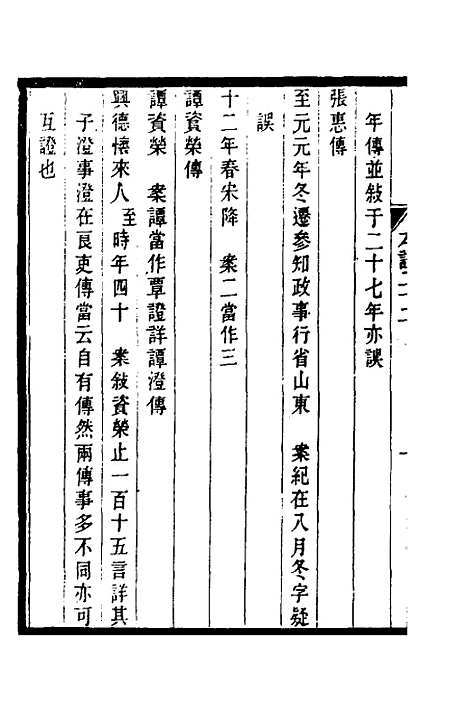 年傳並敍于二十七年亦誤
張惠傳
至元元年冬遷參知政事行省山東　案紀在八月冬字疑
誤
十二年春宋降　案二當作三
譚資榮傳
譚資榮　案譚當作覃證詳譚澄傳
興德懷來人　至時年四十　案敍資榮止一百十五言詳其
子澄事澄在良吏傳當云自有傳然兩傳事多不同亦可
互證也